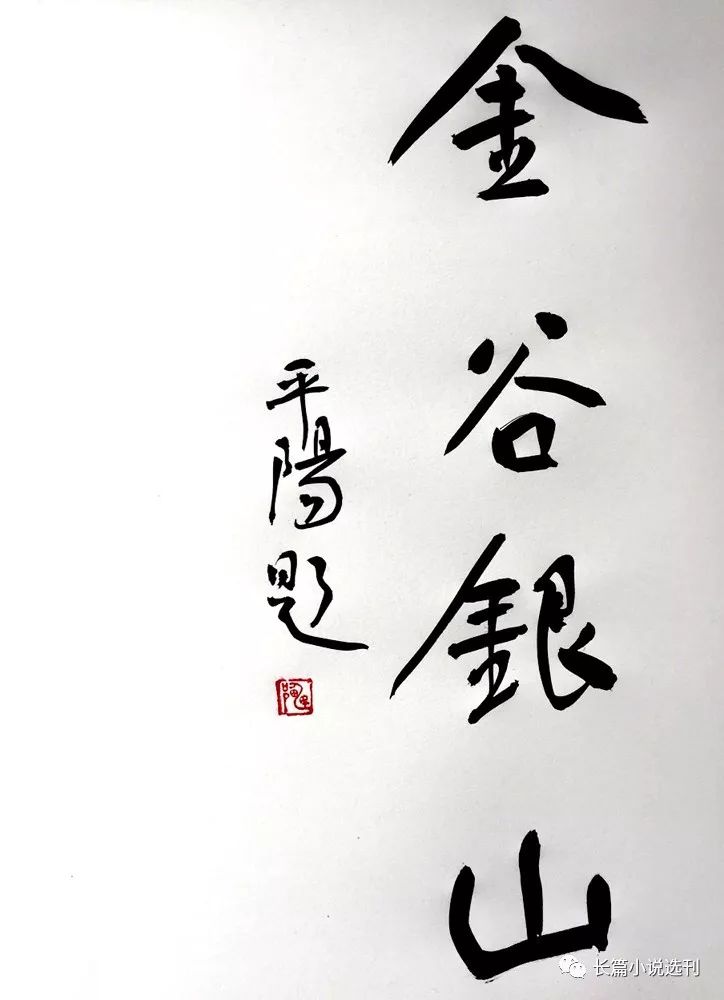 金谷銀山
平陽題
长篇小说选刊